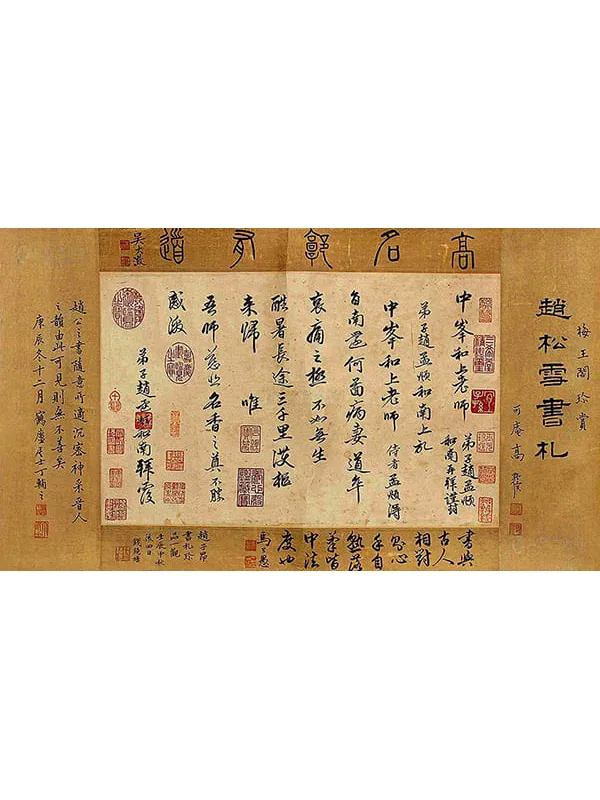 梅王閣珍賞
趙松雪書札
可庵高
高名
有道
吳大澂
中峯和上老師
弟子趙孟頫
和南再拜謹封
弟子趙孟頫和南上於
中峯和上老師 侍者孟頫得
旨南還何啚病妻道卒
哀痛之極不如無生
酷暑長途三千里護柩
來歸 唯
吾師慈悲 之 不勝
感激
弟子趙孟頫和南拜覆
書與
古人
相對
心
手自
落
筆皆
中法
度也
馬公愚
趙子昂
書札珍
品一觀
壬辰中秋
後四日
錢鏡塘
趙公之書隨意所適沉密神采晉人
之韻由此可見則無不善矣
庚辰冬十二月鶴廬居士丁輔之